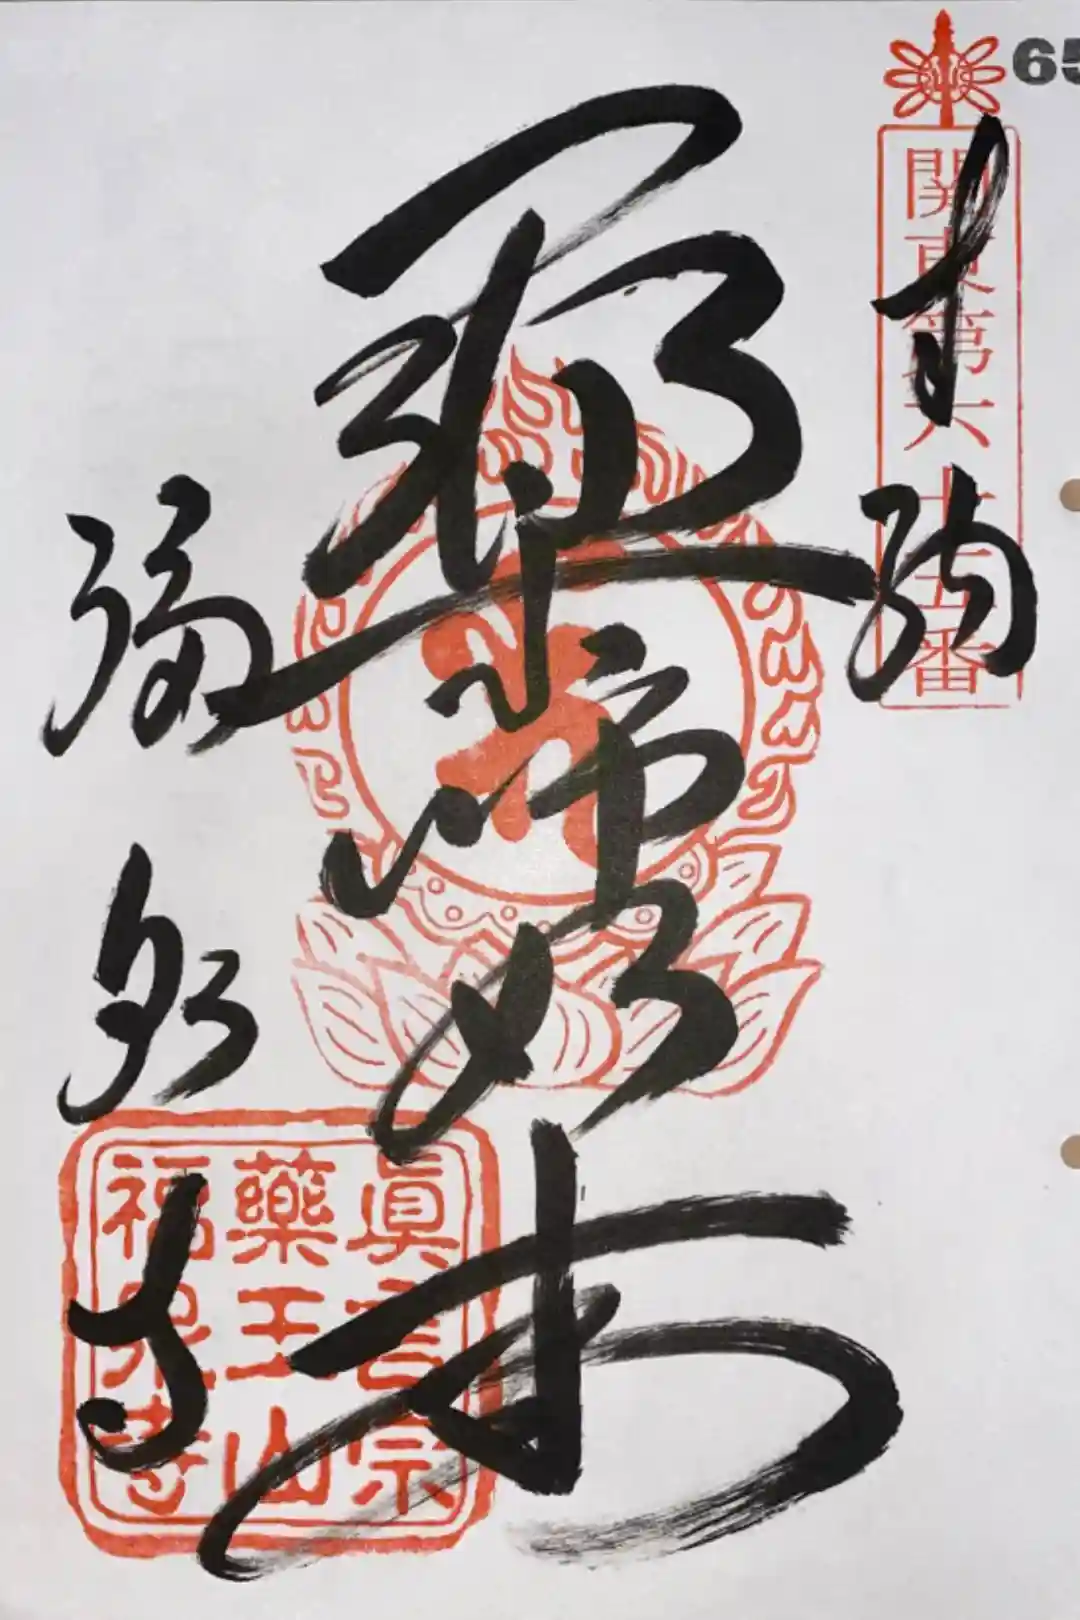 65
関東第六十五番
奉納
薬師如来
福泉寺
眞言宗
藥王山
福泉寺